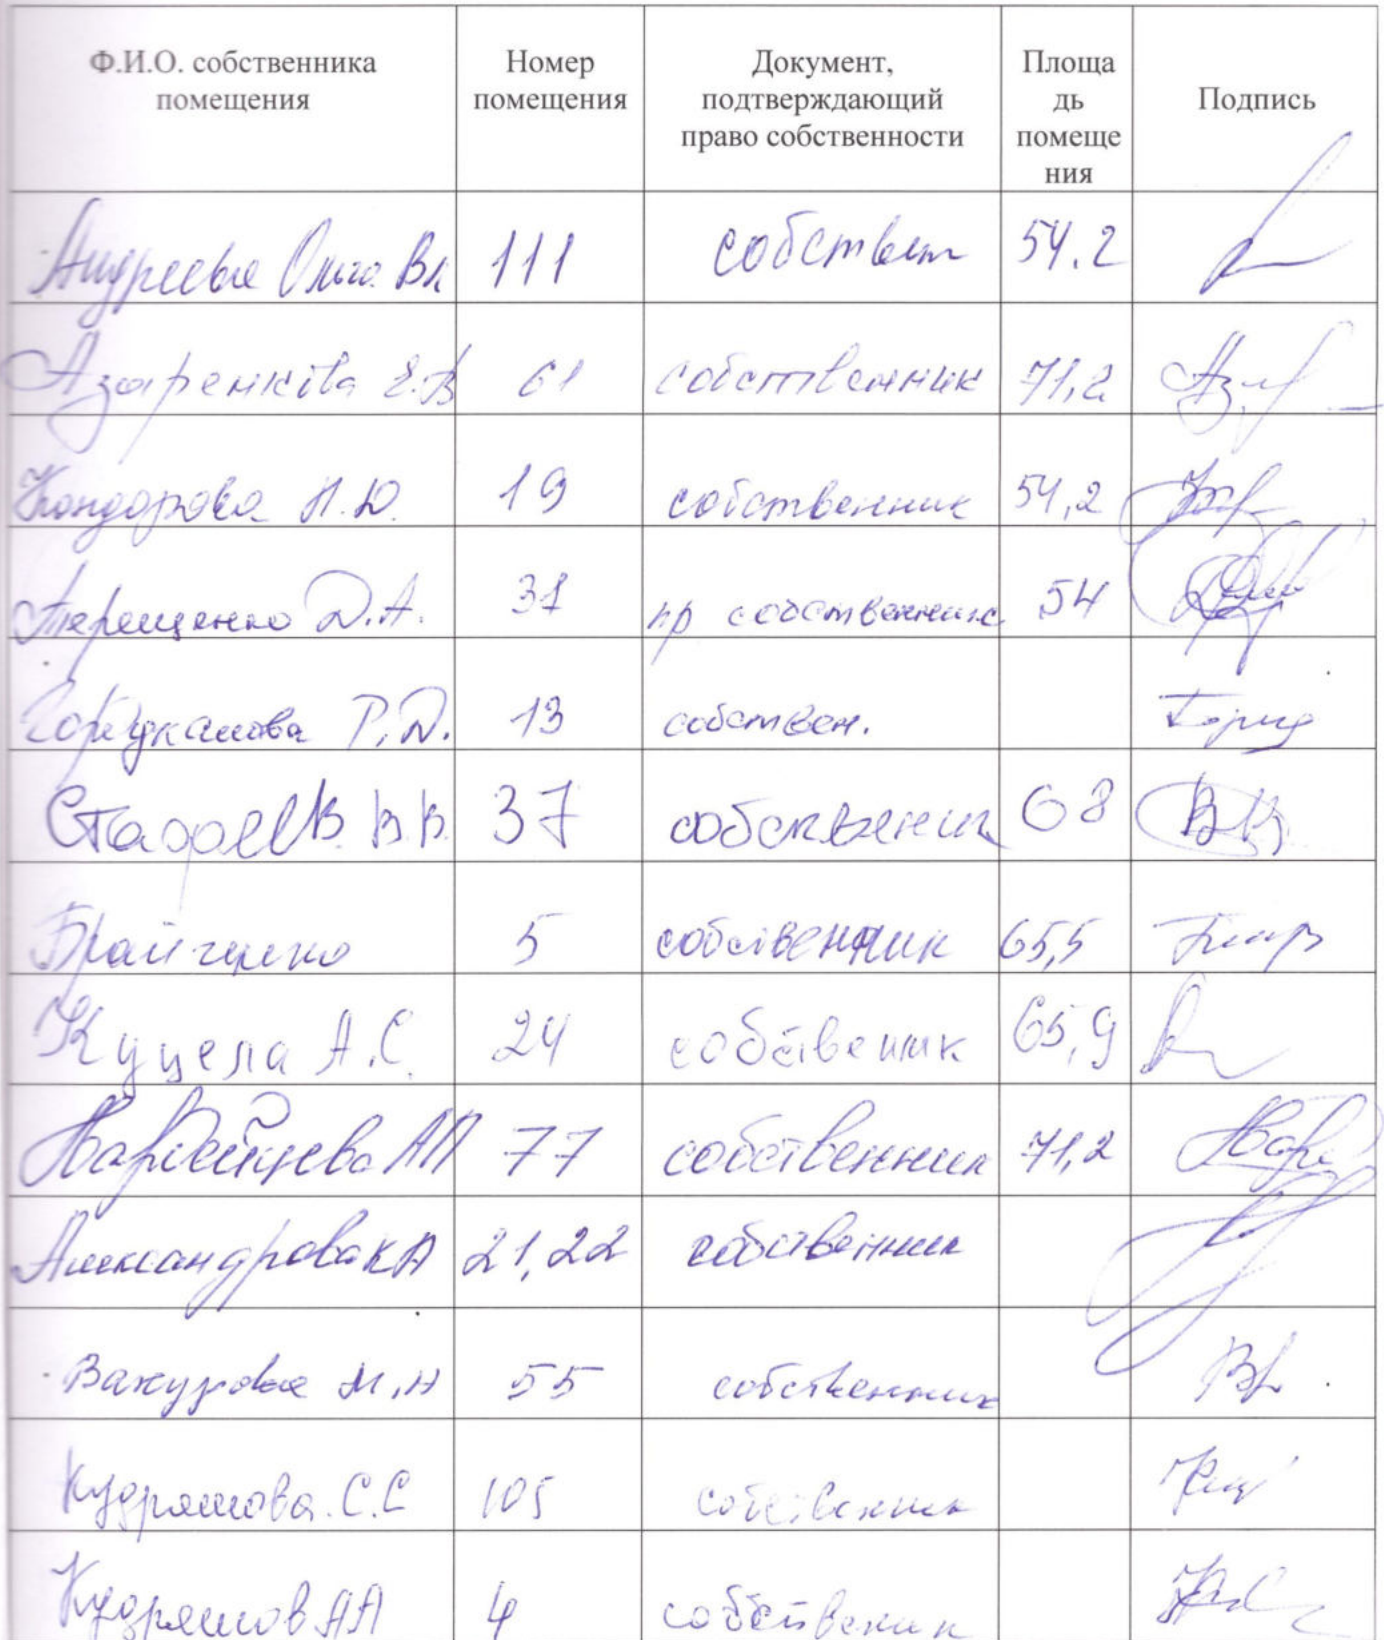 Ф.И.О. собственника помещения Номер помещения Документ, подтверждающий право собственности Площадь помещения Подпись
Андреева Ольга Вл 111 собствен 54.2
Азаренкова Е.В 61 собственник 71,2
Кондорова Н.Ю. 19 собственник 54,2
Терещенко Д.А. 31 пр собственник 54
Р.Д. 13 собствен.
В.В. 37 собственник 68
5 собственник 65,5
Куцела А.С. 24 собственик 65,9
АП 77 собственник 71,2
Александрова КА 21,22 собственник
М.Н 55 собственник
Кудряшова С.С 105 собственник
Кудряшов АА 4 собственик